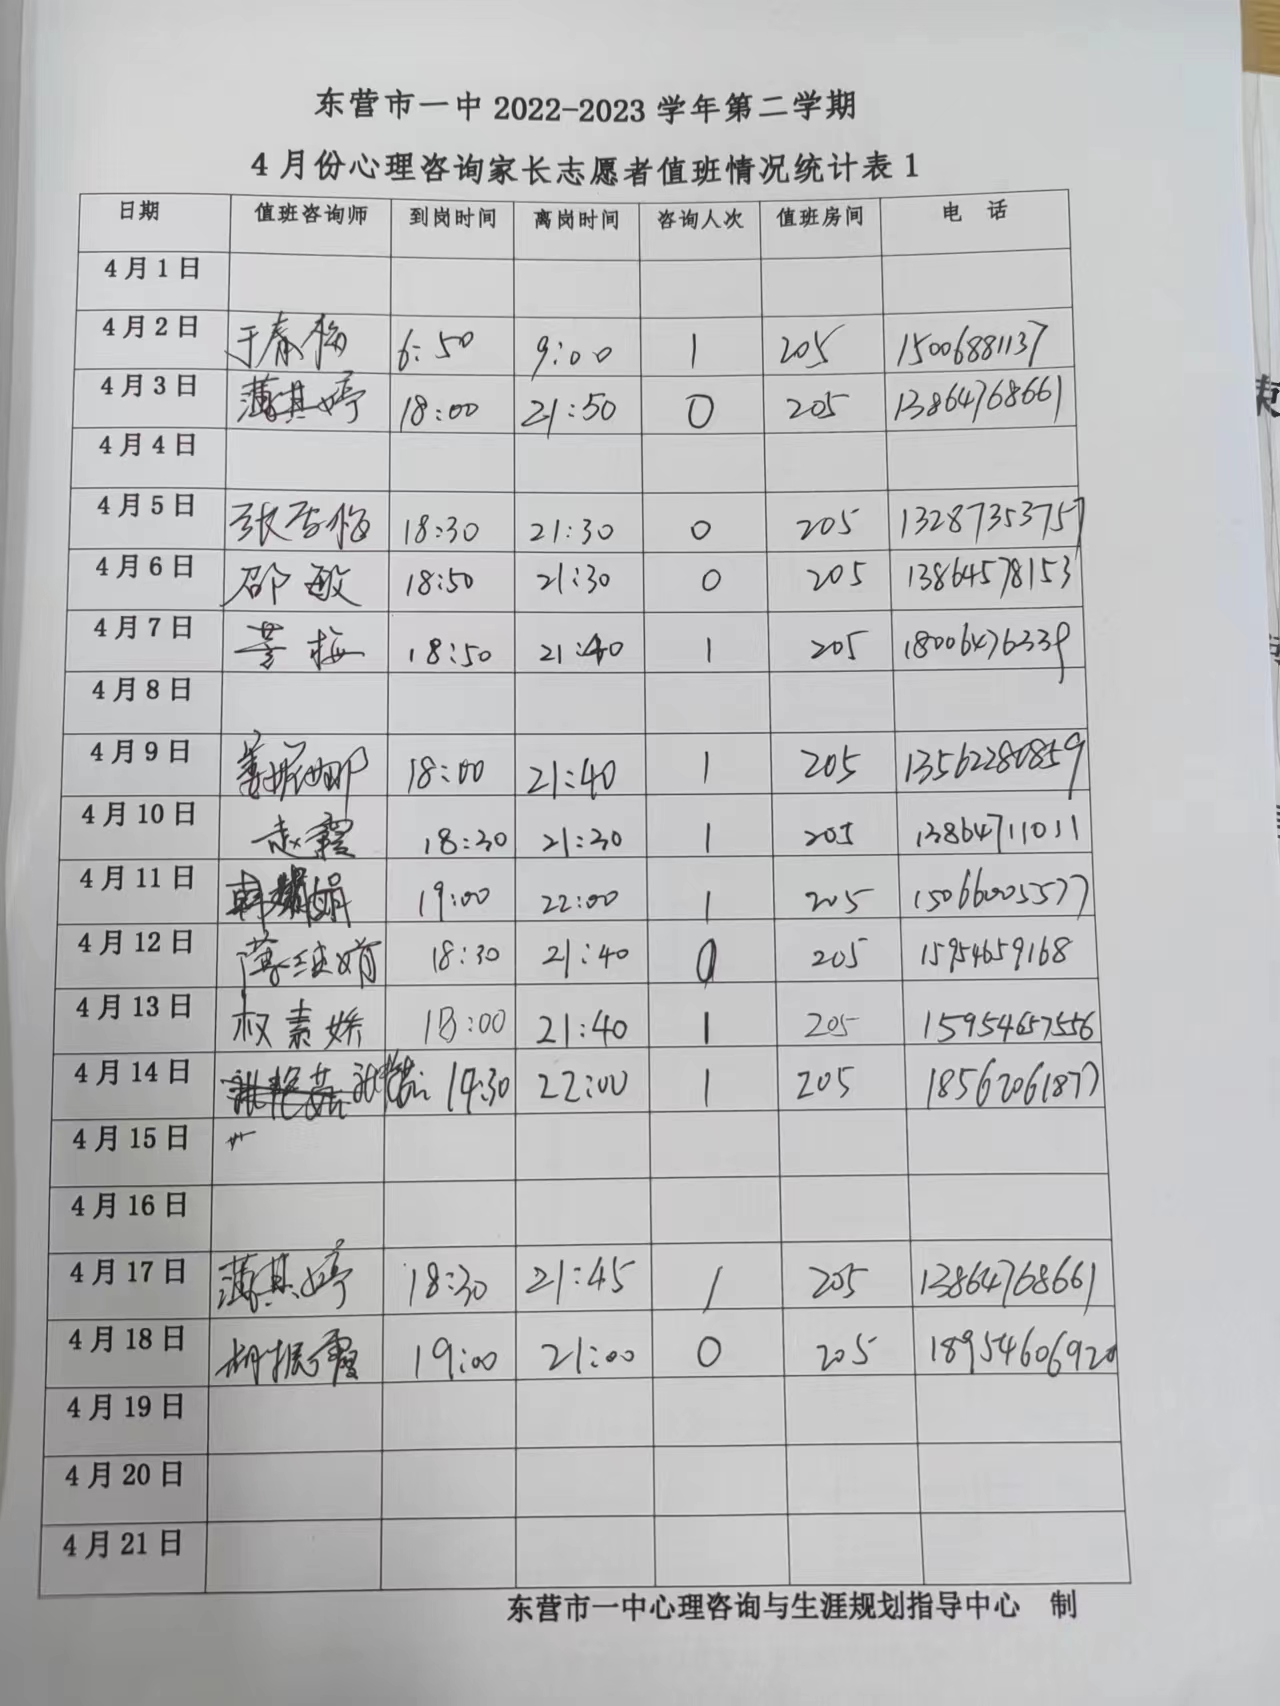 东营市一中 2022-2023 学年第二学期
4 月份心理咨询家长志愿者值班情况统计表 1
日期 值班咨询师 到岗时间 离岗时间 咨询人次 值班房间 电 话
4 月 1 日
4 月 2 日 于春梅 6:50 9:00 1 205 15006881137
4 月 3 日 薄其婷 18:00 21:50 0 205 13864768661
4 月 4 日
4 月 5 日 张 梅 18:30 21:30 0 205 13287353757
4 月 6 日 邵敏 18:50 21:30 0 205 13864578153
4 月 7 日 梅 18:50 21:40 1 205 18006476339
4 月 8 日
4 月 9 日 姜妮娜 18:00 21:40 1 205 13562280859
4 月 10 日 赵霞 18:30 21:30 1 205 13864711011
4 月 11 日 韩 娟 19:00 22:00 1 205 15066005577
4 月 12 日 18:30 21:40 0 205 15954659168
4 月 13 日 权素娇 18:00 21:40 1 205 15954657556
4 月 14 日 22:00 1 205 18562061877
4 月 15 日
4 月 16 日
4 月 17 日 薄其婷 18:30 21:45 1 205 13864768661
4 月 18 日 胡振霞 19:00 21:00 0 205 18954606920
4 月 19 日
4 月 20 日
4 月 21 日
东营市一中心理咨询与生涯规划指导中心 制